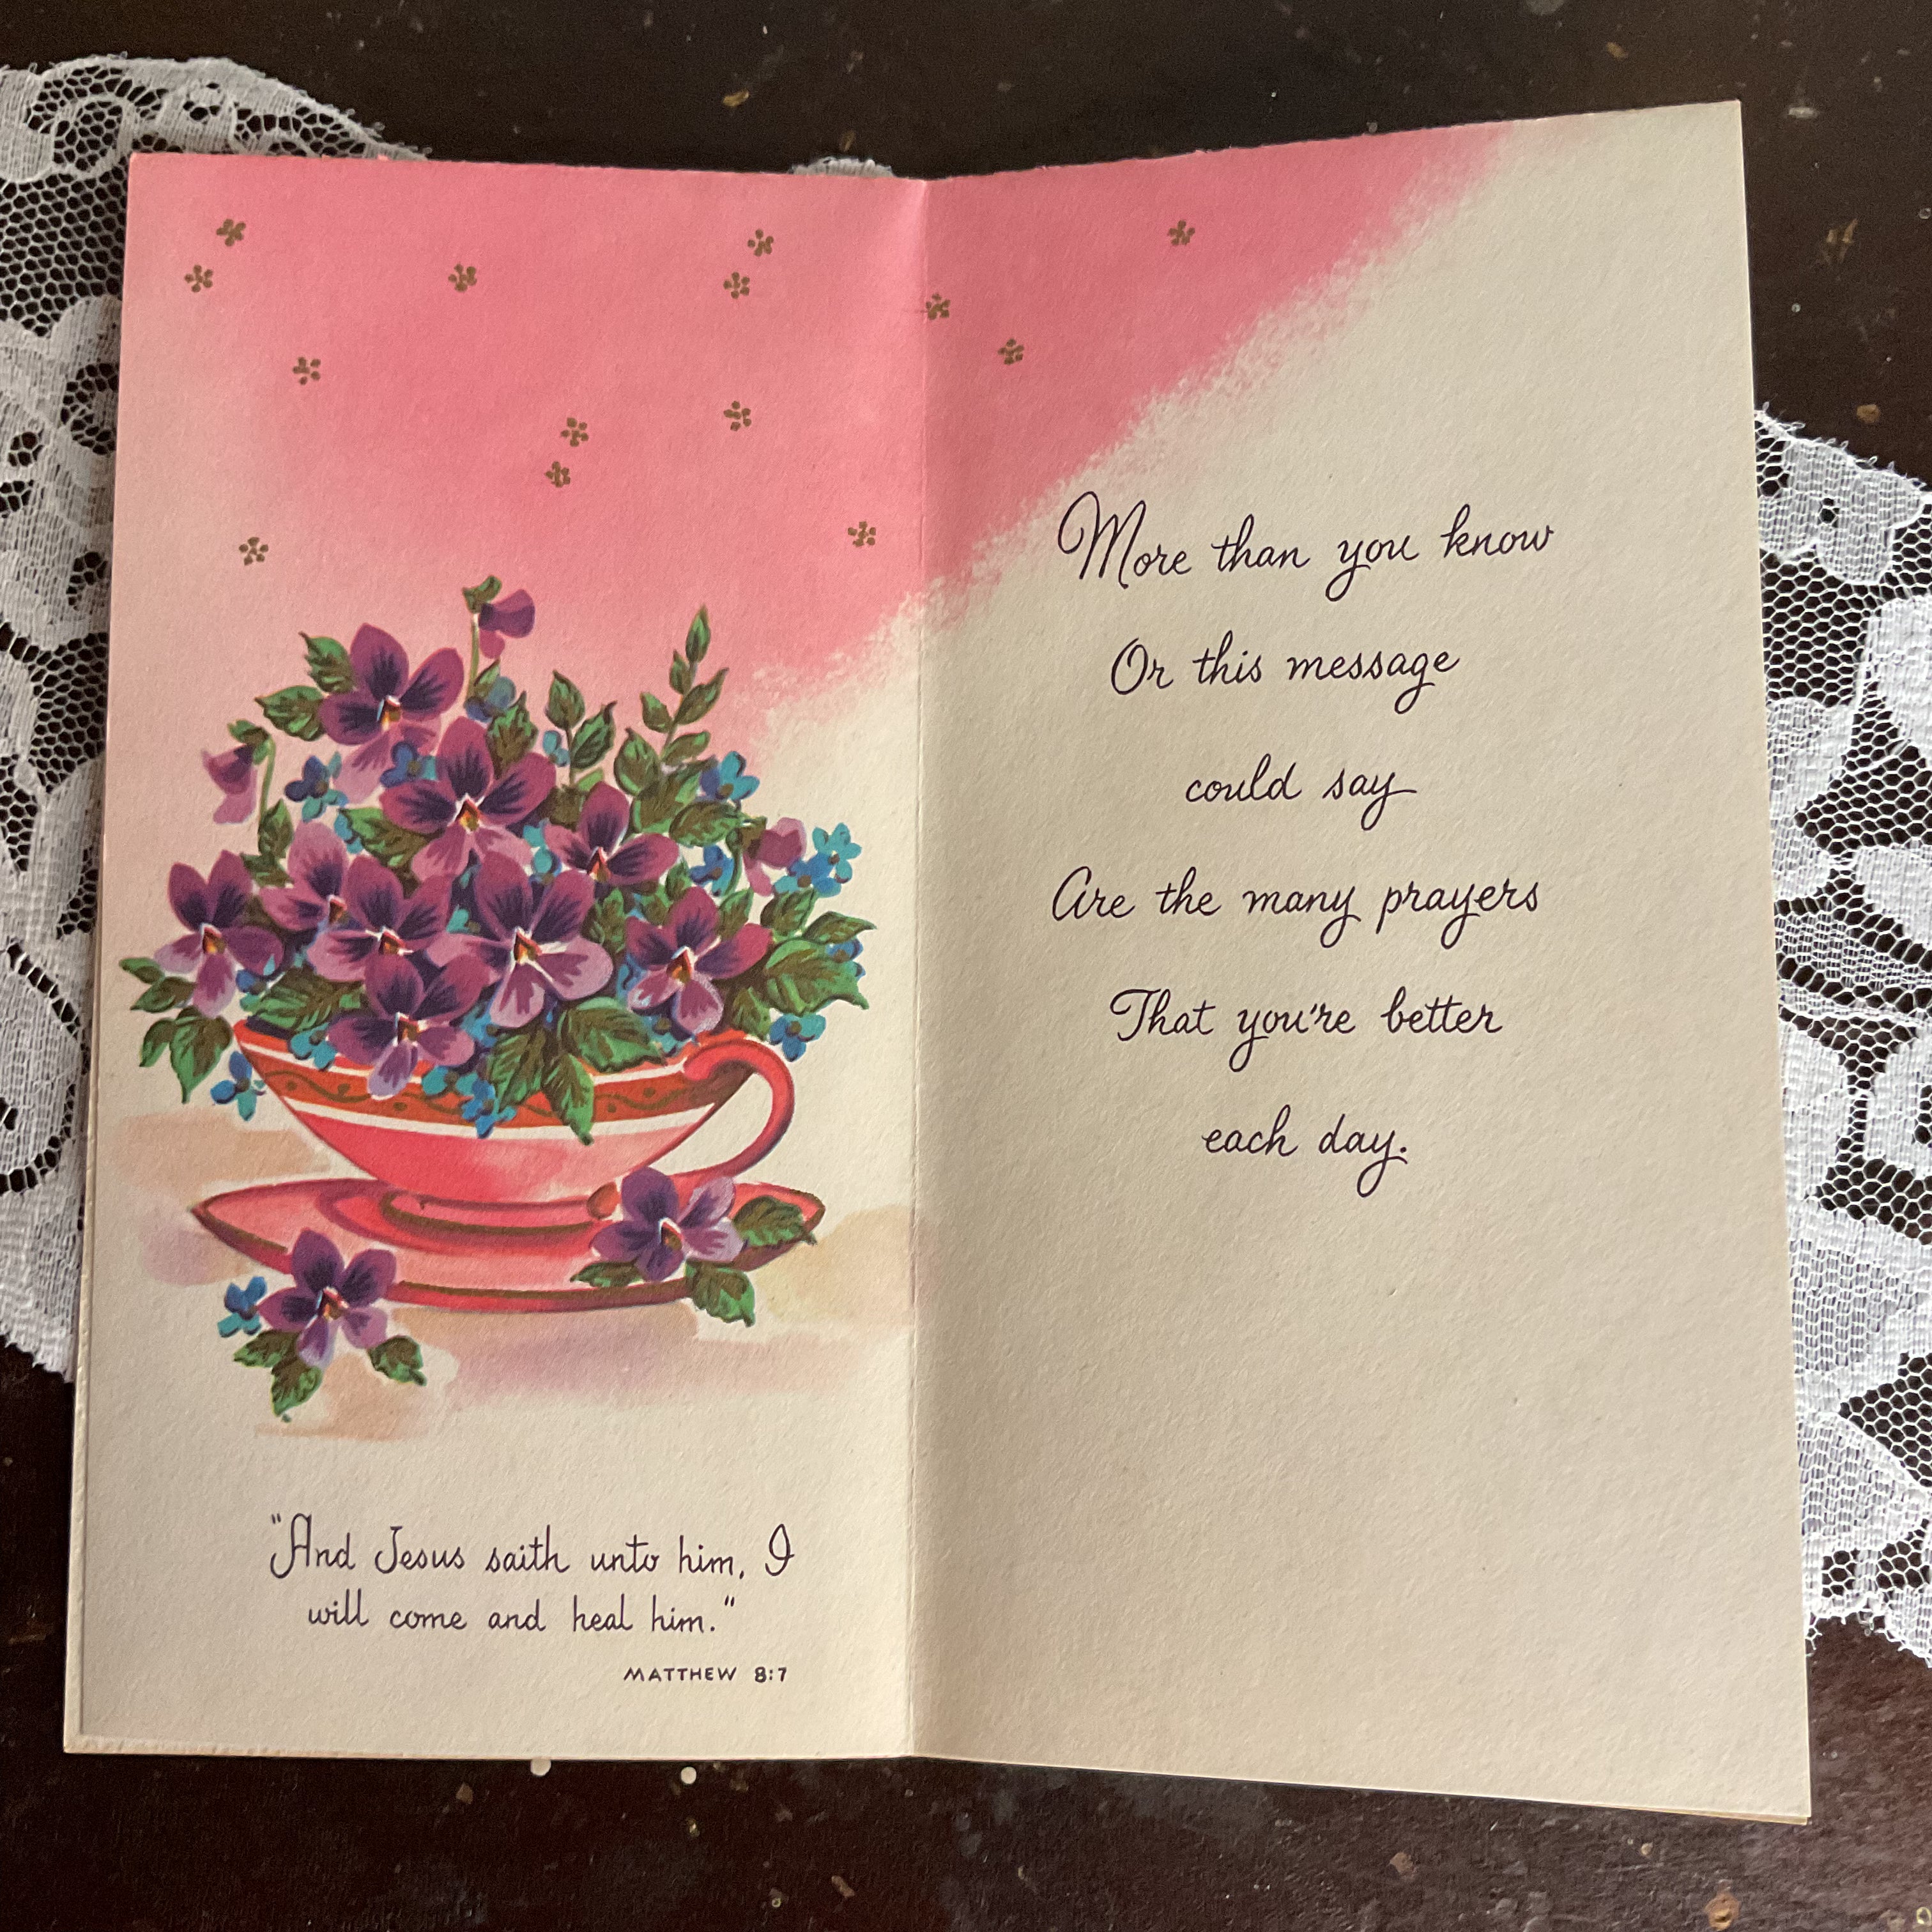 "And Jesus saith unto him, I
will come and heal him."
MATTHEW 8:7
More than you know
Or this message
could say
Are the many prayers
That you're better
each day.